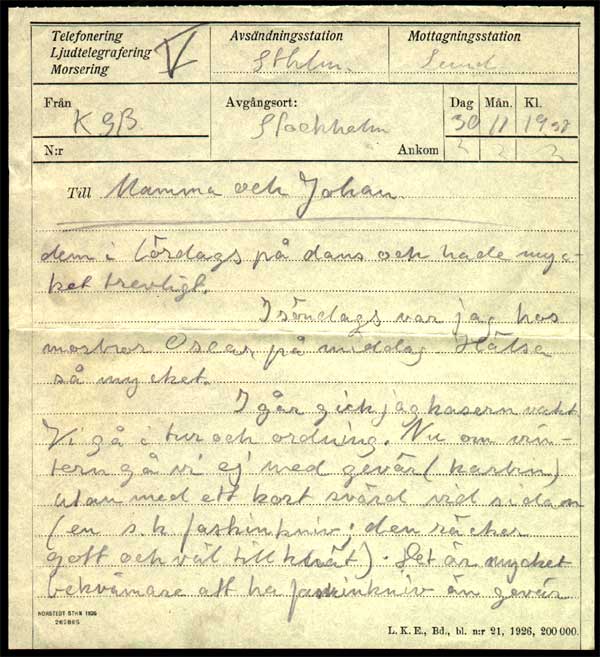 Telefonering
Ljudtelegrafering
Morsering
V
Avsändningsstation
Sthlm.
Mottagningsstation
Lund
Från
KGB.
Avgångsort:
Stockholm
Dag Mån. Kl.
30 11
N:r
Ankom
Till Mamma och Johan
dem i lördags på dans och hade myc-
ket trevligt.
I söndags var jag hos
Oscar på middag Hälsa
så mycket.
I går gick jag kasern vakt
Vi gå i tur och ordning. Nu om vin-
tern gå vi ej med gevär (karbin)
utan med ett kort svärd vid sidan
(en s.k faskinkniv; den räcker
gott och väl till ). Det är mycket
bekvämare att ha faskinkniv än gevär
NORSTEDT STHM 1926
262865
L. K. E., Bd., bl. n:r 21, 1926, 200 000.